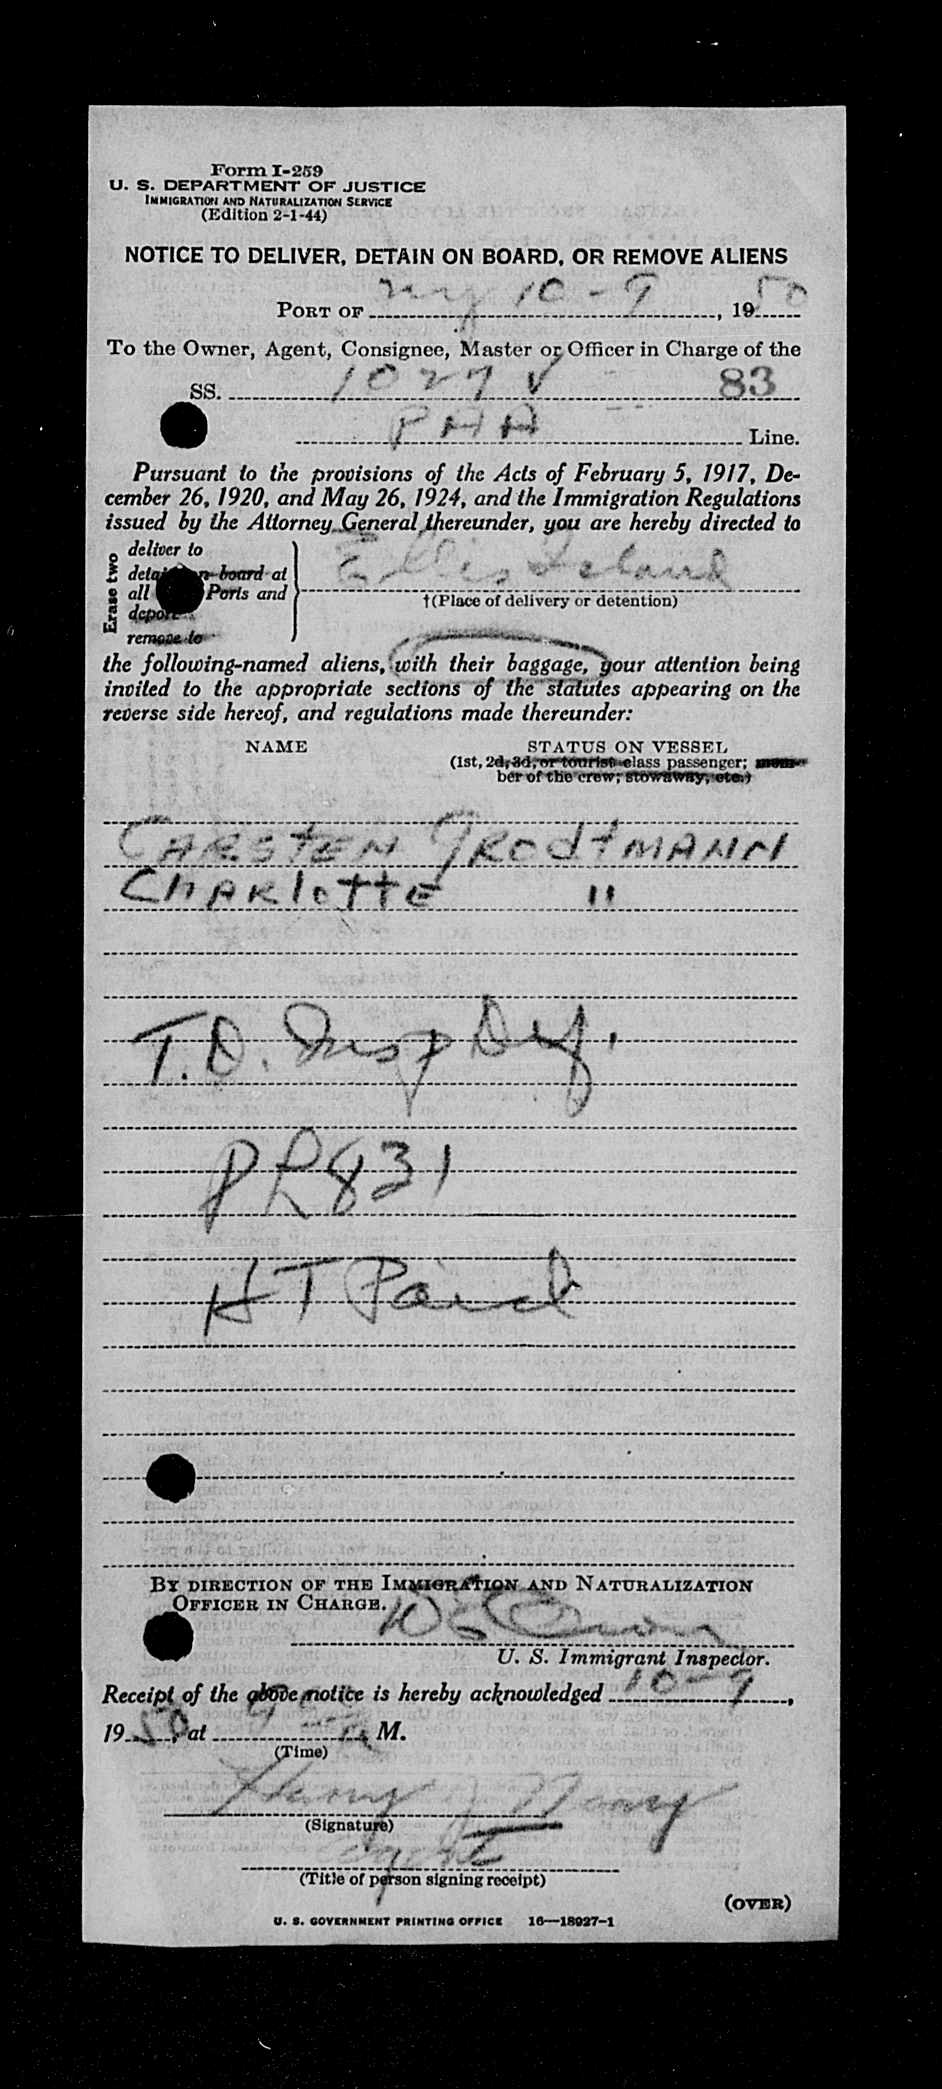 Form I-259
U. S. DEPARTMENT OF JUSTICE
IMMIGRATION AND NATURALIZATION SERVICE
(Edition 2-1-44)
NOTICE TO DELIVER, DETAIN ON BOARD, OR REMOVE ALIENS
PORT OF ny 10-9, 1950
To the Owner, Agent, Consignee, Master or Officer in Charge of the
SS. 1027 V 83
PAA Line.
Pursuant to the provisions of the Acts of February 5, 1917, De-
cember 26, 1920, and May 26, 1924, and the Immigration Regulations
issued by the Attorney General thereunder, you are hereby directed to
Erase two
deliver to
on board at
all Ports and
remove to
Ellis Island
†(Place of delivery or detention)
the following-named aliens, with their baggage, your attention being
invited to the appropriate sections of the statutes appearing on the
reverse side hereof, and regulations made thereunder:
NAME STATUS ON VESSEL
(1st, 2d, 3d, or tourist class passenger; mem-
ber of the crew; stowaway, etc.)
CARSTEN GRODTMANN
CHARLOTTE "
T.D. Insp Def.
PR831
HT Paid
BY DIRECTION OF THE IMMIGRATION AND NATURALIZATION
OFFICER IN CHARGE.
U. S. Immigrant Inspector.
Receipt of the above notice is hereby acknowledged 10-9,
1950, at 9 M.
(Time)
Harry J
(Signature)
agent
(Title of person signing receipt)
(OVER)
U. S. GOVERNMENT PRINTING OFFICE 16—18927-1